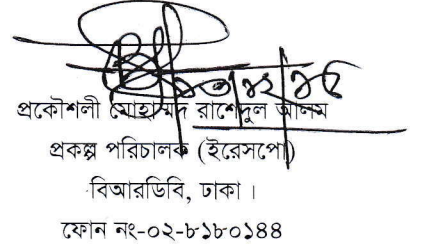 প্রকৌশলী মোহাম্মদ রাশেদুল আলম
প্রকল্প পরিচালক (ইরেসপো)
বিআরডিবি, ঢাকা ।
ফোন নং-০২-৮১৮০১৪৪